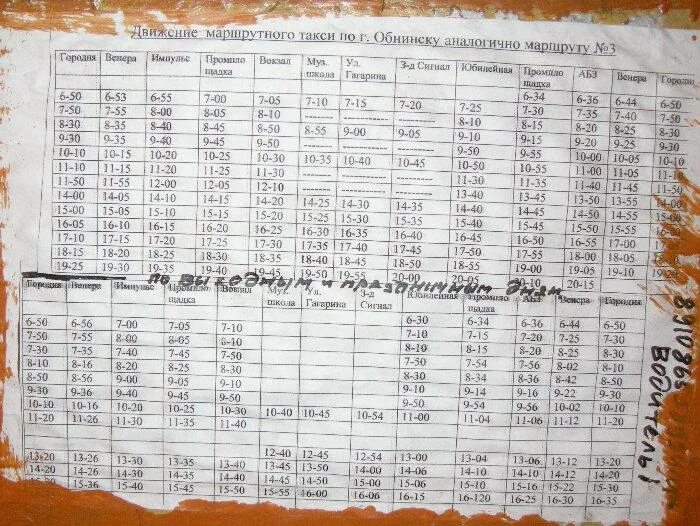 Движение маршрутного такси по г. Обнинску аналогично маршруту №3
Городня Венера Импульс Промпло щадка Вокзал Муз. школа Ул. Гагарина З-д Сигнал Юбилейная Промпло щадка АБЗ Венера Городня
6-34 6-36 6-44 6-50
6-50 6-53 6-55 7-00 7-05 7-10 7-15 7-20 7-25 7-30 7-35 7-40 7-50
7-50 7-55 8-00 8-05 8-10 -------- -------- -------- 8-10 8-15 8-20 8-25 8-30
8-30 8-35 8-40 8-45 8-50 8-55 9-00 9-05 9-10 9-15 9-20 9-25 9-30
9-30 9-35 9-40 9-45 9-50 -------- -------- -------- 9-50 9-55 10-00 10-05 10-10
10-10 10-15 10-20 10-25 10-30 10-35 10-40 10-45 10-50 10-55 11-00 11-05 11-10
11-10 11-15 11-20 11-25 11-30 -------- -------- -------- 11-30 11-35 11-40 11-45 11-50
11-50 11-55 12-00 12-05 12-10 -------- -------- -------- 13-40 13-45 13-50 13-55 14-00
14-00 14-05 14-10 14-15 14-20 14-25 14-30 14-35 14-40 14-45 14-50 14-55 15-00
15-00 15-05 15-10 15-15 15-20 15-25 15-30 15-35 15-40 15-45 15-50 15-55 16-05
16-05 16-10 16-15 16-20 16-25 16-30 16-35 16-40 16-45 16-50 16-55 17-00 17-10
17-10 17-15 17-20 17-25 17-30 17-35 17-40 17-45 17-50 17-55 18-00 18-05
18-15 18-20 18-25 18-30 18-35 18-40 18-45 18-50 18-55 19-00 19-05 19-10
19-25 19-30 19-35 19-40 19-45 19-50 19-55 20-00 20-05 20-10 20-15
по выходным и праздничным дням
Городня Венера Импульс Промпло щадка Вокзал Муз. школа Ул. Гагарина З-д Сигнал Юбилейная Промпло щадка АБЗ Венера Городня
6-50 6-56 7-00 7-05 7-10 6-30 6-34 6-36 6-44 6-50
7-50 7-55 8-00 8-05 8-10 7-10 7-15 7-20 7-25 7-30
7-30 7-35 7-40 7-45 7-50 8-10 8-15 8-20 8-25 8-30
8-10 8-16 8-20 8-25 8-30 7-50 7-54 7-56 8-02 8-10
8-50 8-56 9-00 9-05 9-10 8-30 8-34 8-36 8-42 8-50
9-30 9-36 9-40 9-45 9-50 9-10 9-14 9-16 9-22 9-30
10-10 10-16 10-20 10-25 10-30 10-40 10-45 10-54 9-50 9-54 9-56 10-02 10-10
11-20 11-26 11-30 11-35 11-40 11-00 11-04 11-06 11-12 11-20
12-40 12-45 12-54 13-00 13-04 13-06 13-12 13-20
13-20 13-26 13-30 13-35 13-40 13-45 13-50 14-00 14-06 14-10 14-10 14-12 14-20
14-20 14-36 14-40 14-35 14-40 14-45 14-50 15-00 15-06 15-10 15-16 15-22 15-30
15-30 15-36 15-40 15-45 15-50 15-55 16-00 16-06 16-15 16-120 16-25 16-30 16-35
водитель!